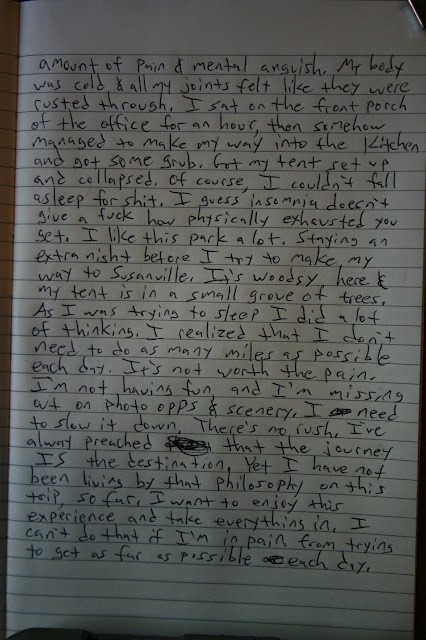 amount of pain & mental anguish. My body
was cold & all my joints felt like they were
rusted through. I sat on the front porch
of the office for an hour, then somehow
managed to make my way into the kitchen
and got some grub. Got my tent set up
and collapsed. Of course, I couldn't fall
asleep for shit. I guess insomnia doesn't
give a fuck how physically exhausted you
get. I like this park a lot. Staying an
extra night before I try to make my
way to Susanville. It's woodsy here &
my tent is in a small grove of trees.
As I was trying to sleep I did a lot
of thinking. I realized that I don't
need to do as many miles as possible
each day. It's not worth the pain.
I'm not having fun and I'm missing
out on photo opps & scenery. I need
to slow it down. There's no rush. I've
alway preached that the journey
IS the destination. Yet I have not
been living by that philosophy on this
trip, so far. I want to enjoy this
experience and take everything in. I
can't do that if I'm in pain from trying
to get as far as possible each day.